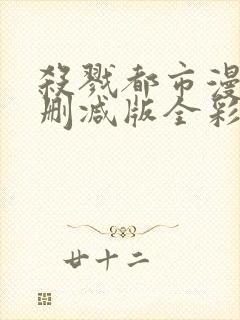 殺戮都市漫
删减版全彩
廿十二